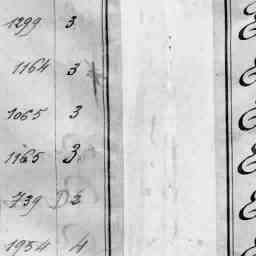 1299 3
1164 3
1065 3
1165 3
739 3
1954 4